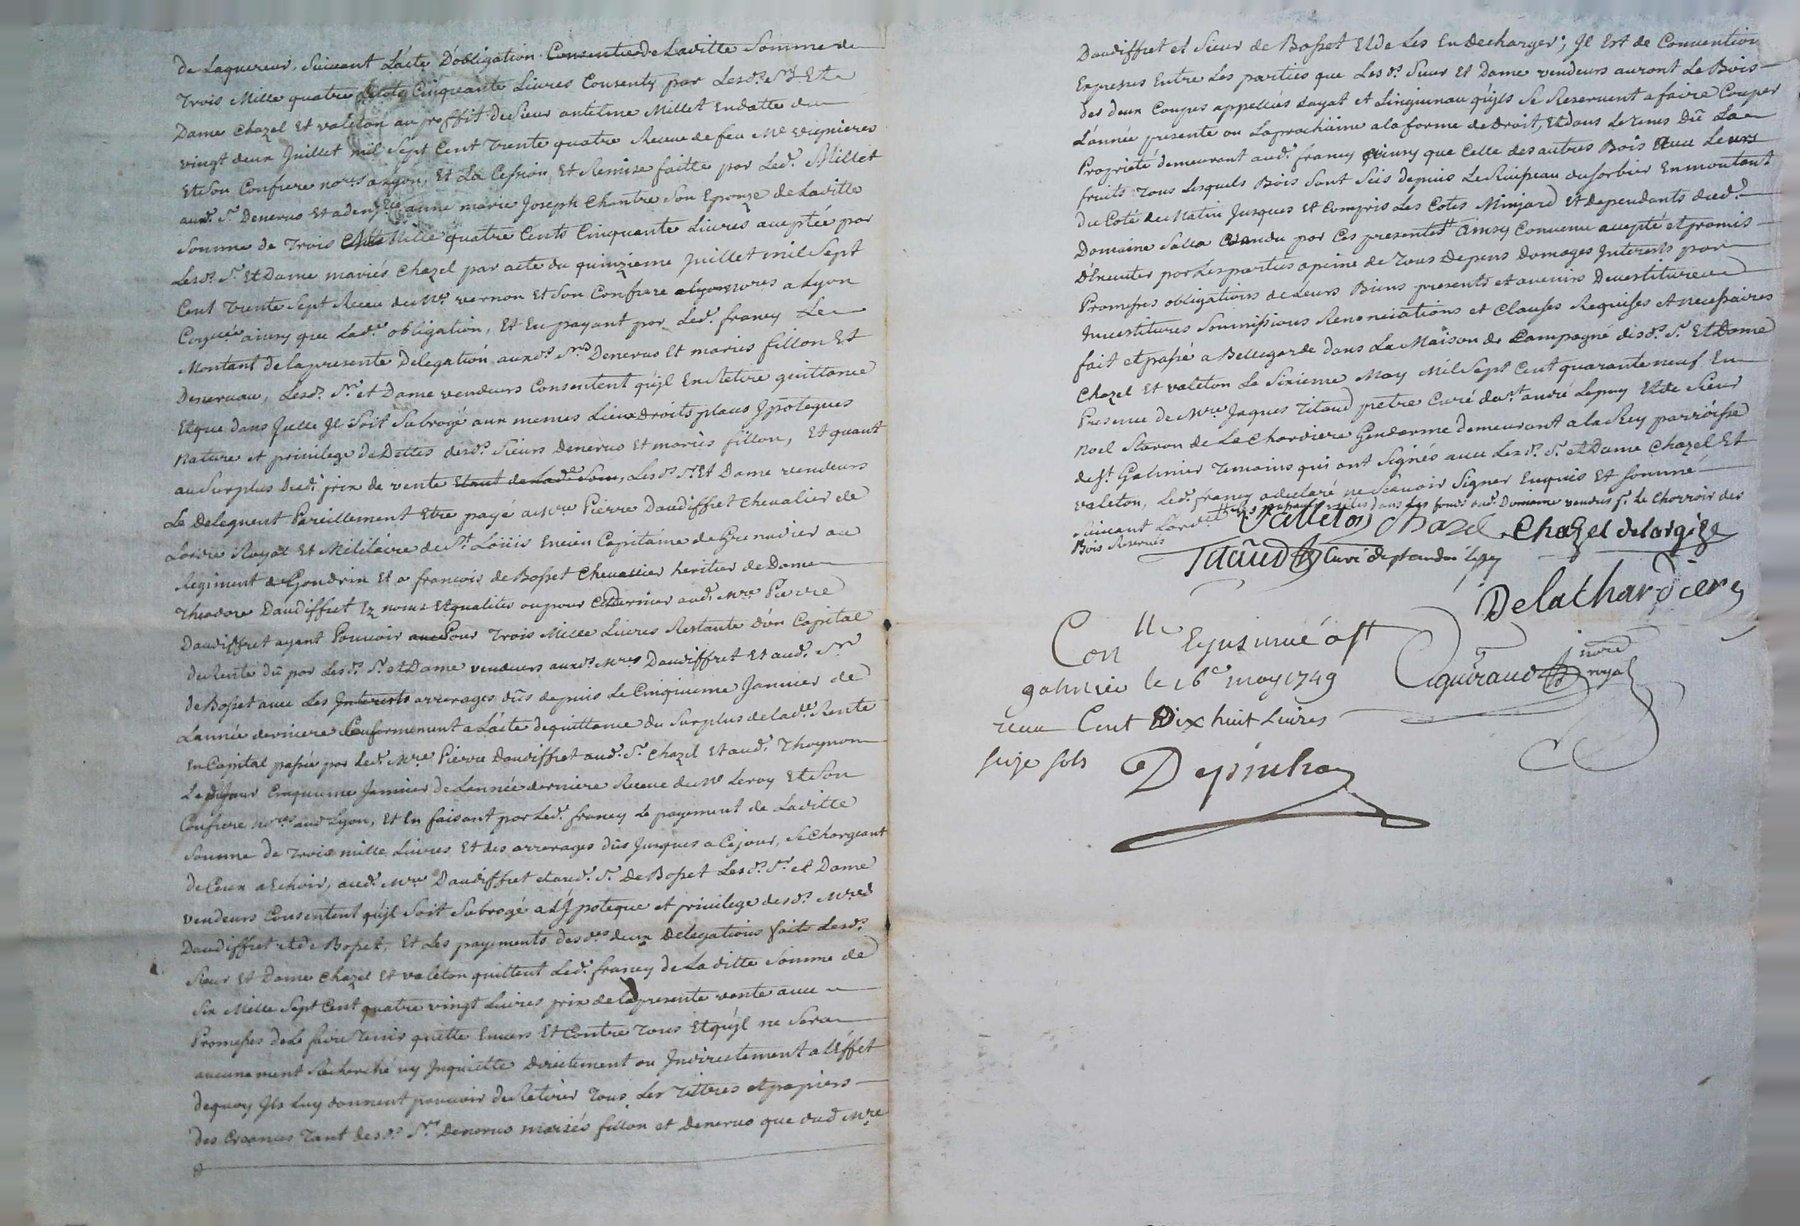 de Laquereur, Suivant L'acte D'obligation Consentie de Laditte Somme de
Trois Mille quatre Cents Cinquante Livres Consenty par Lesd.s Srs Et
Dame Chazel et valeton au proffit du Sieur antelme Millet En datte du
vingt deux Juillet mil Sept Cent Trente quatre Receue de feu Me vrginieres
Et Son Confrere nores a Lyon, Et La Cession Et Remise faitte par Led. Millet
aud. Sr Denervo Et a anne marie Joseph Chantre Son Epouze de Laditte
Somme de Trois Mille quatre Cents Cinquante Livres acceptée par
Lesd. Sr Et Dame mariés Chazel par acte du quinzieme Juillet mil Sept
Cent Trente Sept Receu de Me vernon Et Son Confrere nores a Lyon
ainsy que Lad.e obligation, Et En payant par Led. francy Le
Montant de La presente Delegation auxd. Srs Denervo Et mariés fillon Et
Denervau, Lesd. Sr et Dame vendeurs Consentent qu'jl En Retire quittance
Et que dans Jcelle Jl Soit Subrogé aux memes Lieux droits place Jpoteques
Nature et privilege de Dettes desd. Sieurs Denervo Et mariés fillon, Et quant
au Surplus dud. prix de vente Lesd. Sr Et Dame vendeurs
Le Deleguent Pareillement Etre payé a Mre Pierre Daudiffret Chevalier de
Lordre Royal Et Militaire de St Loüis Encien Capitaine de Grenadier au
Regiment de Gondrin Et a francois de Bosset Chevallier heritier de Dame
Theodore Daudiffret Ez noms Et qualités ou pour Ce Dernier aud. Mre Pierre
Daudiffret ayant Pouvoir Pour Trois Mille Livres Restante d'un Capital
de Rente dû par Lesd. Sr et Dame vendeurs auxd. Mres Daudiffret Et aud. Sr
de Bosset avec Les Interests arrerages dûs depuis Le Cinquieme Janvier de
Lannée derniere Conformement a L'acte de quittance du Surplus de lad.e Rente
En Capital passée par Led. Mre Pierre Daudiffret aud. Sr Chazel Et aud. Thoynon
Le Cinquieme Janvier de Lannée derniere Receue de Me Leroy Et Son
Confrere nores aud Lyon, Et En faisant par Led. francy Le payement de Laditte
Somme de Trois mille Livres Et des arrerages dûs Jusques a Cejour, Se Chargeant
de Ceux a Echoir, aud. Mre Daudiffret et aud. Sr De Bosset Lesd. Sr et Dame
vendeurs Consentent qu'jl Soit Subrogé a L'Jpoteque et privilege desd. Mres
Daudiffret et de Bosset, Et Les payements desd.es deux Delegations faits Lesd.
Sieur Et Dame Chazel Et valeton quittent Led. francy de Laditte Somme de
Six Mille Sept Cent quatre vingt Livres prix de la presente vente avec
Promesses de Le faire Tenir quitte Envers Et Contre Tous Et qu'jl ne Sera
aucunement Recherché ny Jnquietté Directement ou Jndirectement a L'Effet
dequoy Jls Luy donnent pouvoir de Retirer Tous Les Tittres et papiers
des Creances Tant desd. Srs Denervo mariés fillon et Denervo que dud Mre
Daudiffret et Sieur de Bosset Et de Les En decharger; Jl Est de Convention
Expresse Entre Les parties que Lesd. Sieur Et Dame vendeurs auront Le Bois
des deux Coupes appellées Layat et qu'jls Se Reservent a faire Couper
L'année presente ou La prochaine a la forme de Droit, Et dans Le Tems Dû La
Propriété demeurant aud. francy ainsy que Celle des autres Bois avec Leurs
fruits Tous Lesquels Bois Sont Scis depuis Le Ruisseau du Sorbier En montant
du Coté du Matin Jusques Et Compris Les Cotes Minjard Et dependants dud.
Domaine Salla vendu par Ces presentes ainsy Convenu accepté et promis
d'Executer par Les parties a peine de Tous Depens Domages Jnterests par
Promesses obligations de Leurs Biens presents et avenirs Devestiture
Jnvestitures Soumissions Renonciations et Clauses Requises et necessaires
fait et passé a Bellegarde dans La Maison de Campagne desd. Sr Et Dame
Chazel Et valeton Le Sixieme May Mil Sept Cent quarante neuf En
Presence de Mre Jaques Titaud prêtre Curé de St andré Lepuy Et de Sieur
Noel Staron de La Chardiere Gendarme demeurant a la Rey parroisse
de St Galmier Temoins qui ont Signés avec Lesd. Sr et Dame Chazel Et
valeton, Led. francy a declaré ne Scavoir Signer Enquis Et Sommé
Suivant Lord. dans Les fonds dud. Domaine vendus
Bois Reservés
Valleton Chazel Chazel delargize
Titaud Curé de st andré le puy
Delachardiere
Con.lle Et jnsinué a st
galmier le 16e may 1749
receu Cent Dix huit Livres
seize sols
Despinchaz
guiraud nore royal